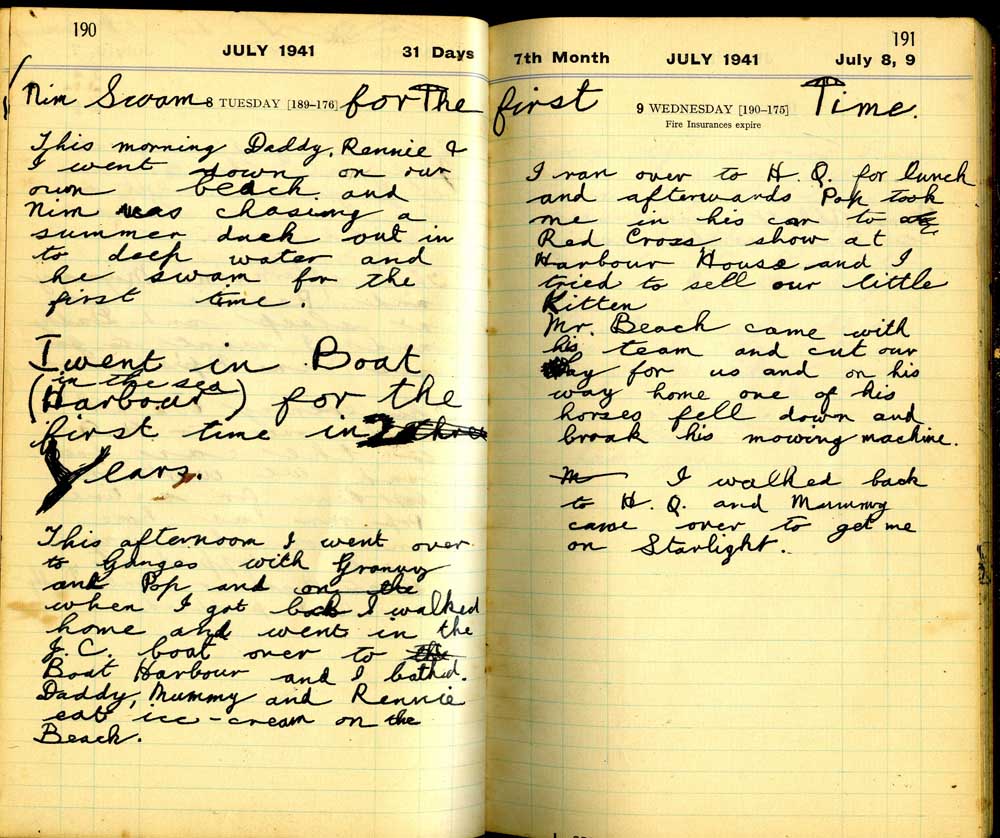 190
JULY 1941 31 Days
Nim Swam 8 TUESDAY [189–176] for The
This morning Daddy, Rennie &
I went down on our
own beach and
Nim was chasing a
summer duck out in
to deep water and
he swam for the
first time.
I went in Boat
in the sea
(Harbour) for the
first time in 2 three
Years.
This afternoon I went over
to Ganges with Granny
and Pop and on the
when I got back I walked
home and went in the
J.C. boat over to the
Boat Harbour and I bathed.
Daddy, Mummy and Rennie
eat ice-cream on the
Beach.
191
7th Month JULY 1941 July 8, 9
first 9 WEDNESDAY [190–175] Time.
Fire Insurances expire
I ran over to H. Q. for lunch
and afterwards Pop took
me in his car to
Red Cross show at
Harbour House and I
tried to sell our little
Kitten
Mr. Beach came with
his team and cut our
hay for us and on his
way home one of his
horses fell down and
broak his mowing machine.
M I walked back
to H. Q. and Mummy
came over to get me
on Starlight.